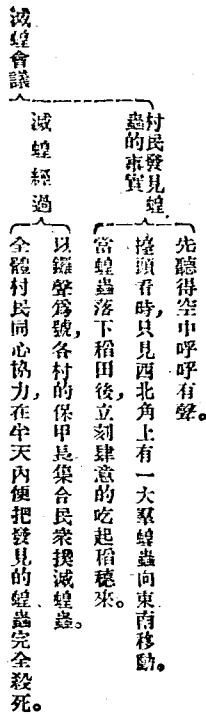 滅蝗會議
村民發見蝗
蟲的事實
先聽得空中呼呼有聲。
擡頭看時,只見西北角上有一大羣蝗蟲向東南移動。
當蝗蟲落下稻田後,立刻肆意的吃起稻穗來。
滅蝗經過
以鑼聲爲號,各村的保甲長集合民衆撲滅蝗蟲。
全體村民同心協力,在半天內便把發見的蝗蟲完全殺死。